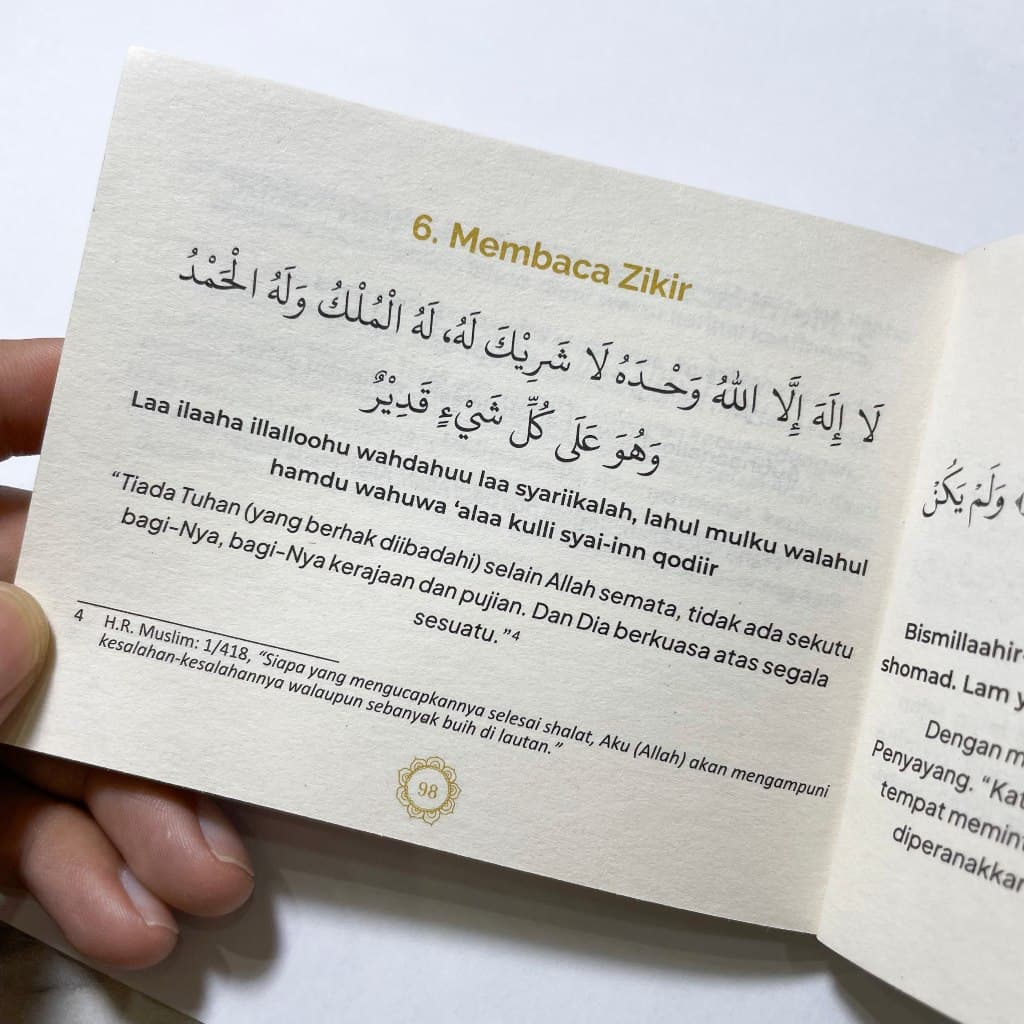 6. Membaca Zikir
لَا إِلَهَ إِلَّا اللهُ وَحْدَهُ لَا شَرِيْكَ لَهُ، لَهُ الْمُلْكُ وَلَهُ الْحَمْدُ
وَهُوَ عَلَى كُلِّ شَيْءٍ قَدِيْرٌ
Laa ilaaha illalloohu wahdahuu laa syariikalah, lahul mulku walahul
hamdu wahuwa ‘alaa kulli syai-inn qodiir
“Tiada Tuhan (yang berhak diibadahi) selain Allah semata, tidak ada sekutu
bagi-Nya, bagi-Nya kerajaan dan pujian. Dan Dia berkuasa atas segala
sesuatu.”4
4 H.R. Muslim: 1/418, “Siapa yang mengucapkannya selesai shalat, Aku (Allah) akan mengampuni
kesalahan-kesalahannya walaupun sebanyak buih di lautan.”
98
وَلَمْ يَكُنْ
Bismillaahir
shomad. Lam
Dengan
Penyayang. “
tempat
diperanakkan